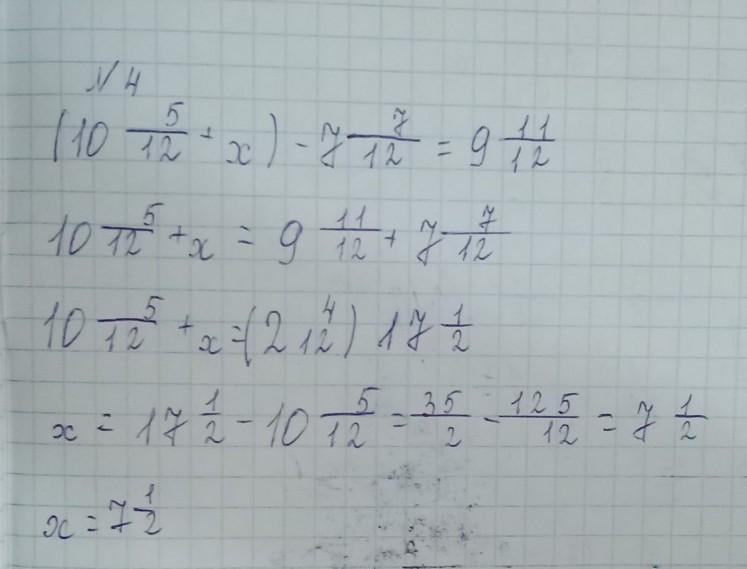 № 4
(10 5/12 + x) - 7 7/12 = 9 11/12
10 5/12 + x = 9 11/12 + 7 7/12
10 5/12 + x = (2 4/12) 17 1/2
x = 17 1/2 - 10 5/12 = 35/2 - 125/12 = 7 1/2
x = 7 1/2